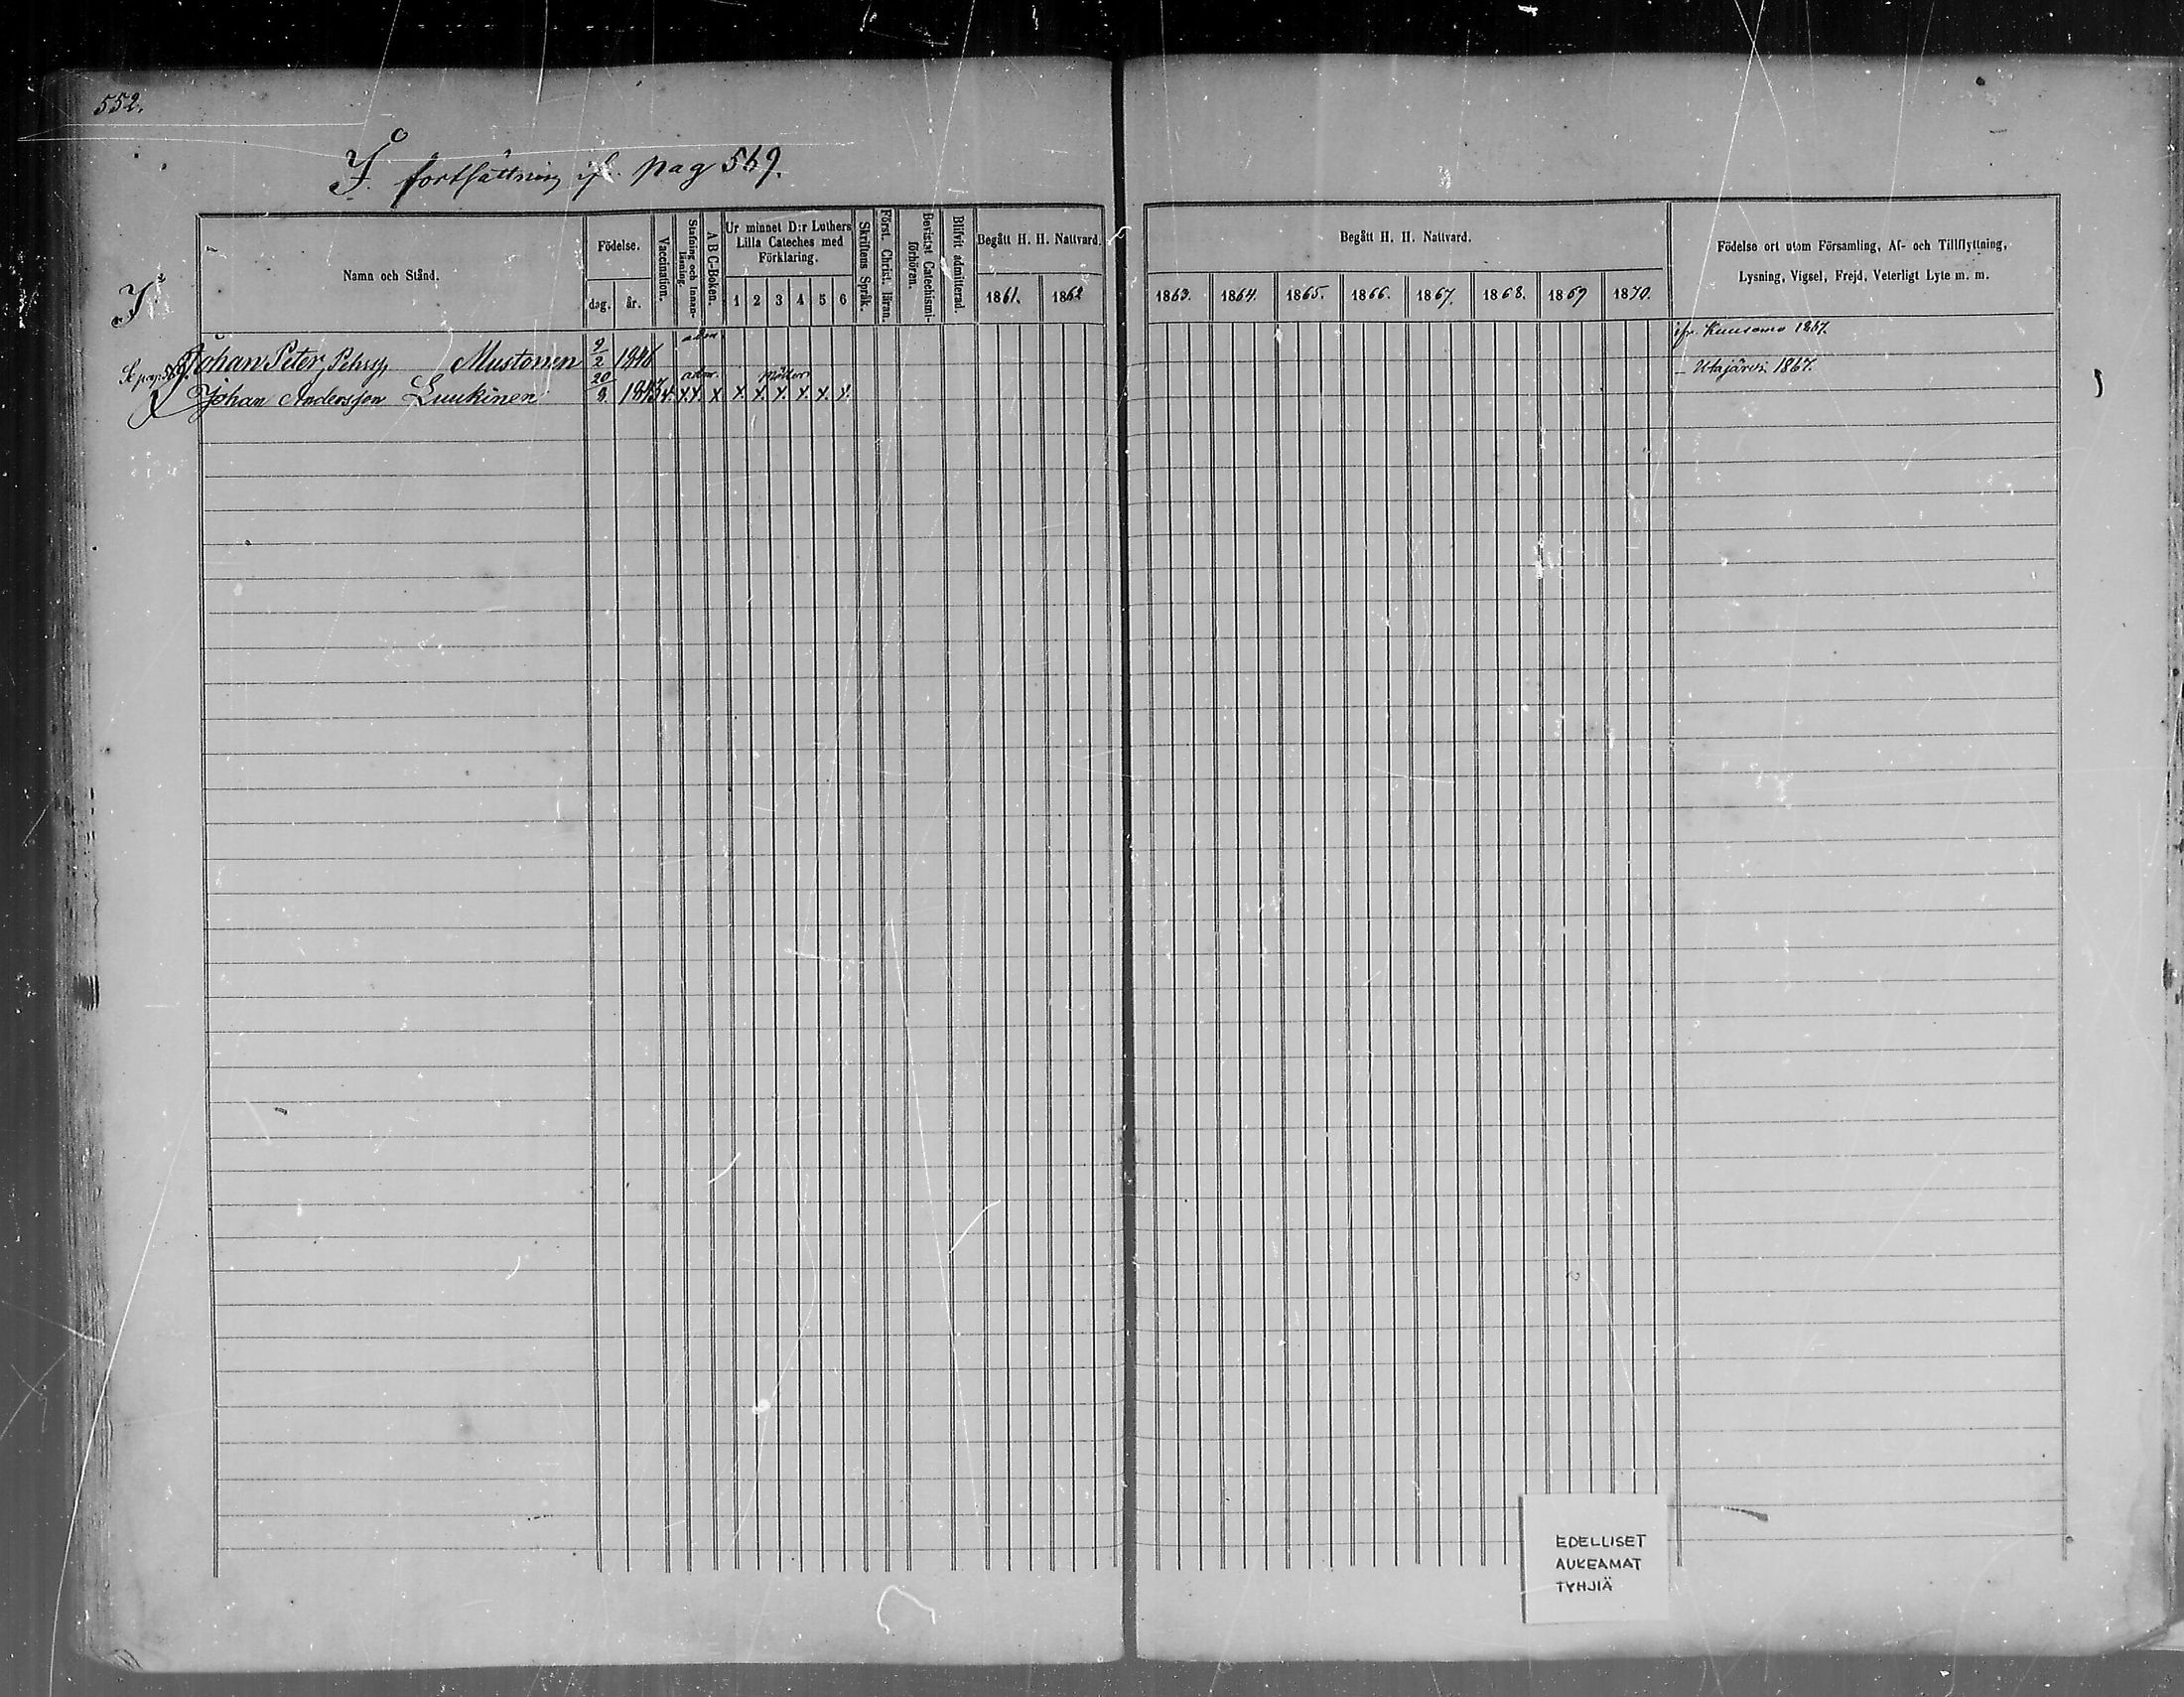 552.
J. fortsättning ifr. pag 569.
Namn och Stånd.
Födelse.
dag. år.
Vaccination.
Stafning och Innan-läsning.
A B C-Boken.
Ur minnet D:r Luthers
Lilla Cateches med
Förklaring.
1 2 3 4 5 6
Skriftens Språk.
Först. Christ. läran.
Bevistat Catechismi-förhören.
Blifvit admitterad.
Begått H. H. Nattvard.
1861. 1862
Begått H. H. Nattvard.
1863. 1864. 1865. 1866. 1867. 1868. 1869 1870.
Födelse ort utom Församling, Af- och Tillflyttning,
Lysning, Vigsel, Frejd, Veterligt Lyte m. m.
J.
Johan Peter Pehrss. Mustonen 9/2 1846 ifr. Kuusamo 1867.
Se pag: 569.
Johan Andersson Luukinen 20/9. 1843 v. x x. x x. x. x. x. x. x. — Utajärvi 1867.
EDELLISET
AUKEAMAT
TYHJIÄ